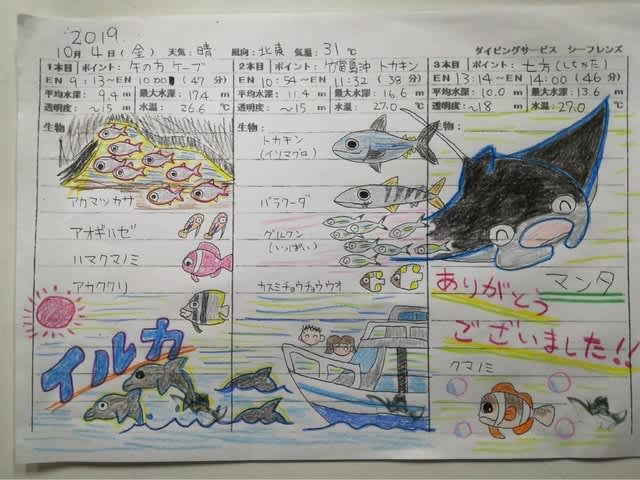 2019
10月 4日 (金) 天気: 晴 風向: 北東 気温: 31℃ ダイビングサービス シーフレンズ
1本目 ポイント: 午の方 ケーブ
EN 9:13～EN 10:00 (47分)
平均水深: 9.4m 最大水深: 17.4m
透明度: ～15m 水温: 26.6℃
生物:
アカマツカサ
アオギハゼ
ハマクマノミ
アカククリ
イルカ
2本目 ポイント: 竹富島沖 トカキン
EN 10:54～EN 11:32 (38分)
平均水深: 11.4m 最大水深: 16.6m
透明度: ～15m 水温: 27.0℃
生物:
トカキン
(イソマグロ)
バラクーダ
グルクン
(いっぱい)
カスミチョウチョウウオ
3本目 ポイント: 七方
EN 13:14～EN 14:00 (46分)
平均水深: 10.0m 最大水深: 13.6m
透明度: ～18m 水温: 27.0℃
生物:
マンタ
ありがとう
ございました!!
クマノミ